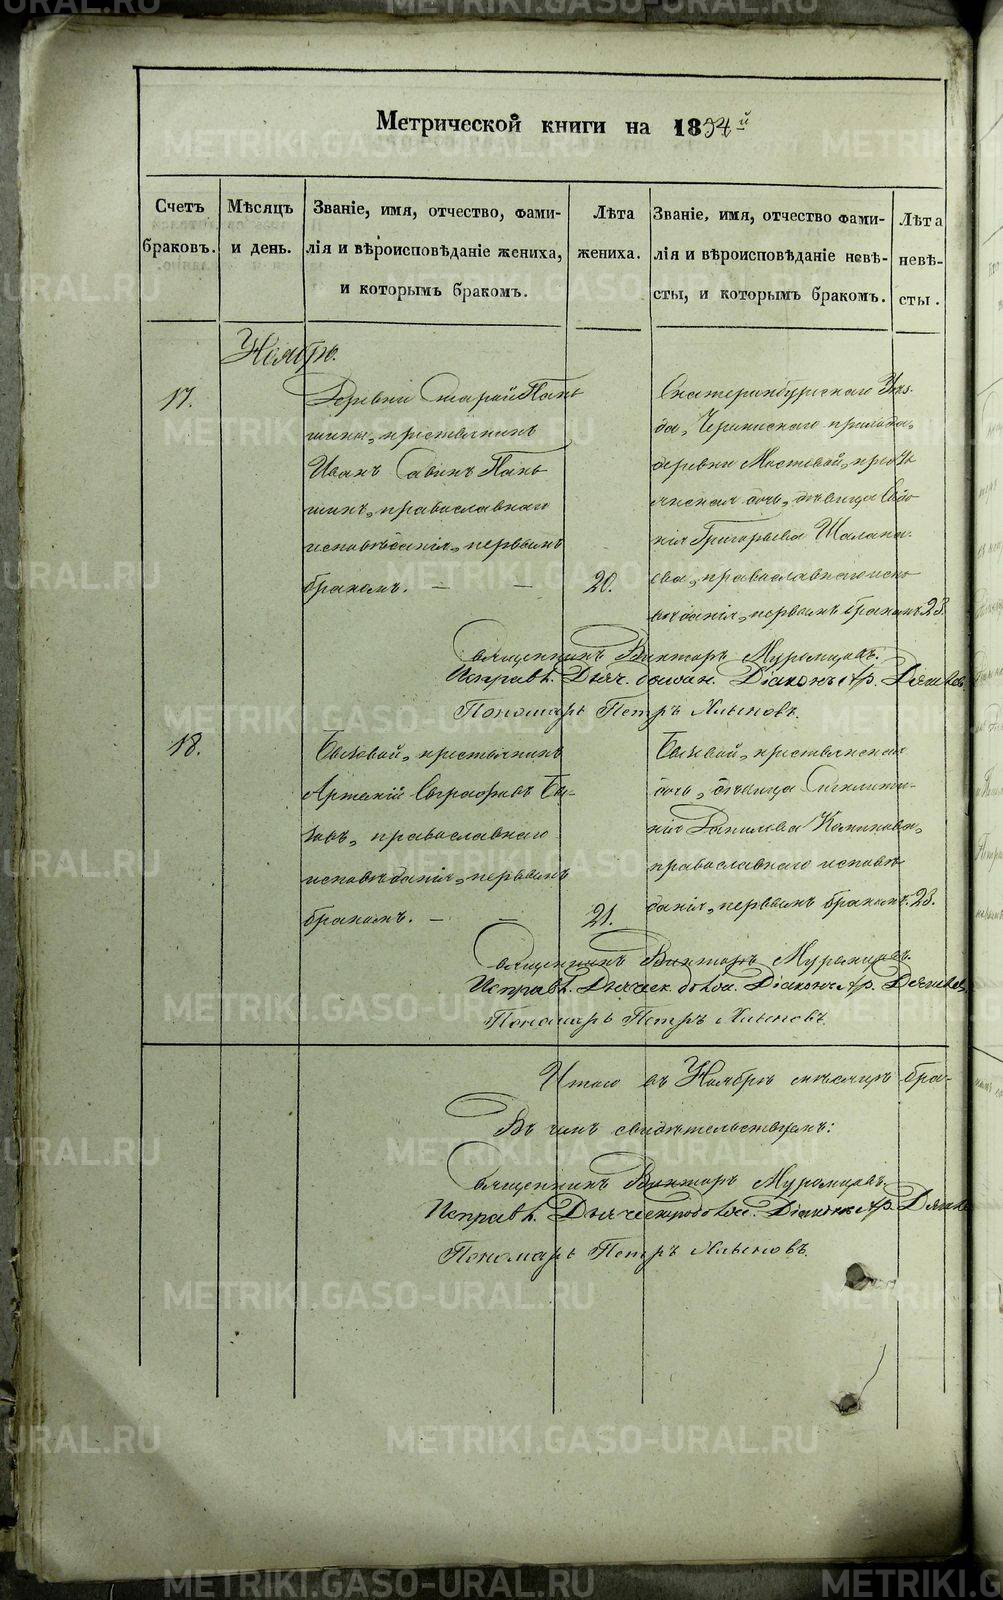 Метрической книги на 1894й
Счетъ браковъ.
Мѣсяцъ и день.
Званіе, имя, отчество, фами-
лія и вѣроисповѣданіе жениха,
и которымъ бракомъ.
Лѣта жениха.
Званіе, имя, отчество фами-
лія и вѣроисповѣданіе невѣ-
сты, и которымъ бракомъ.
Лѣта невѣ-
сты.
Ноябрь.
17.
Деревни Старой Пань
шина, крестьянинъ
Иванъ Савинъ Пань
шинъ, православнаго
исповѣданія, первымъ
бракомъ. — — 20.
Екатеринбургскаго Уѣз-
да, прихода,
деревни Мостовой, кресть
янская дочь, дѣвица
нія Григорьева Шалапа-
ева, православнаго испо
вѣданія, первымъ бракомъ. 23.
Священникъ Викторъ Муромцовъ.
Исправл. Діаконъ
Пономарь Петръ Хлыновъ.
18.
Быковой, крестьянинъ
Артемій Евграфовъ Бы-
ковъ, православнаго
исповѣданія, первымъ
бракомъ. — — 21.
Быковой, крестьянская
дочь, дѣвица Синклити-
кія Данилова
православнаго исповѣ
данія, первымъ бракомъ. 23.
Священникъ Викторъ Муромцовъ.
Исправл. Діаконъ
Пономарь Петръ Хлыновъ
Итого въ Ноябрѣ мѣсяцѣ бра-
Въ чемъ свидѣтельствуемъ:
Священникъ Викторъ Муромцовъ.
Исправл. Діаконъ
Пономарь Петръ Хлыновъ
METRIKI.GASO-URAL.RU